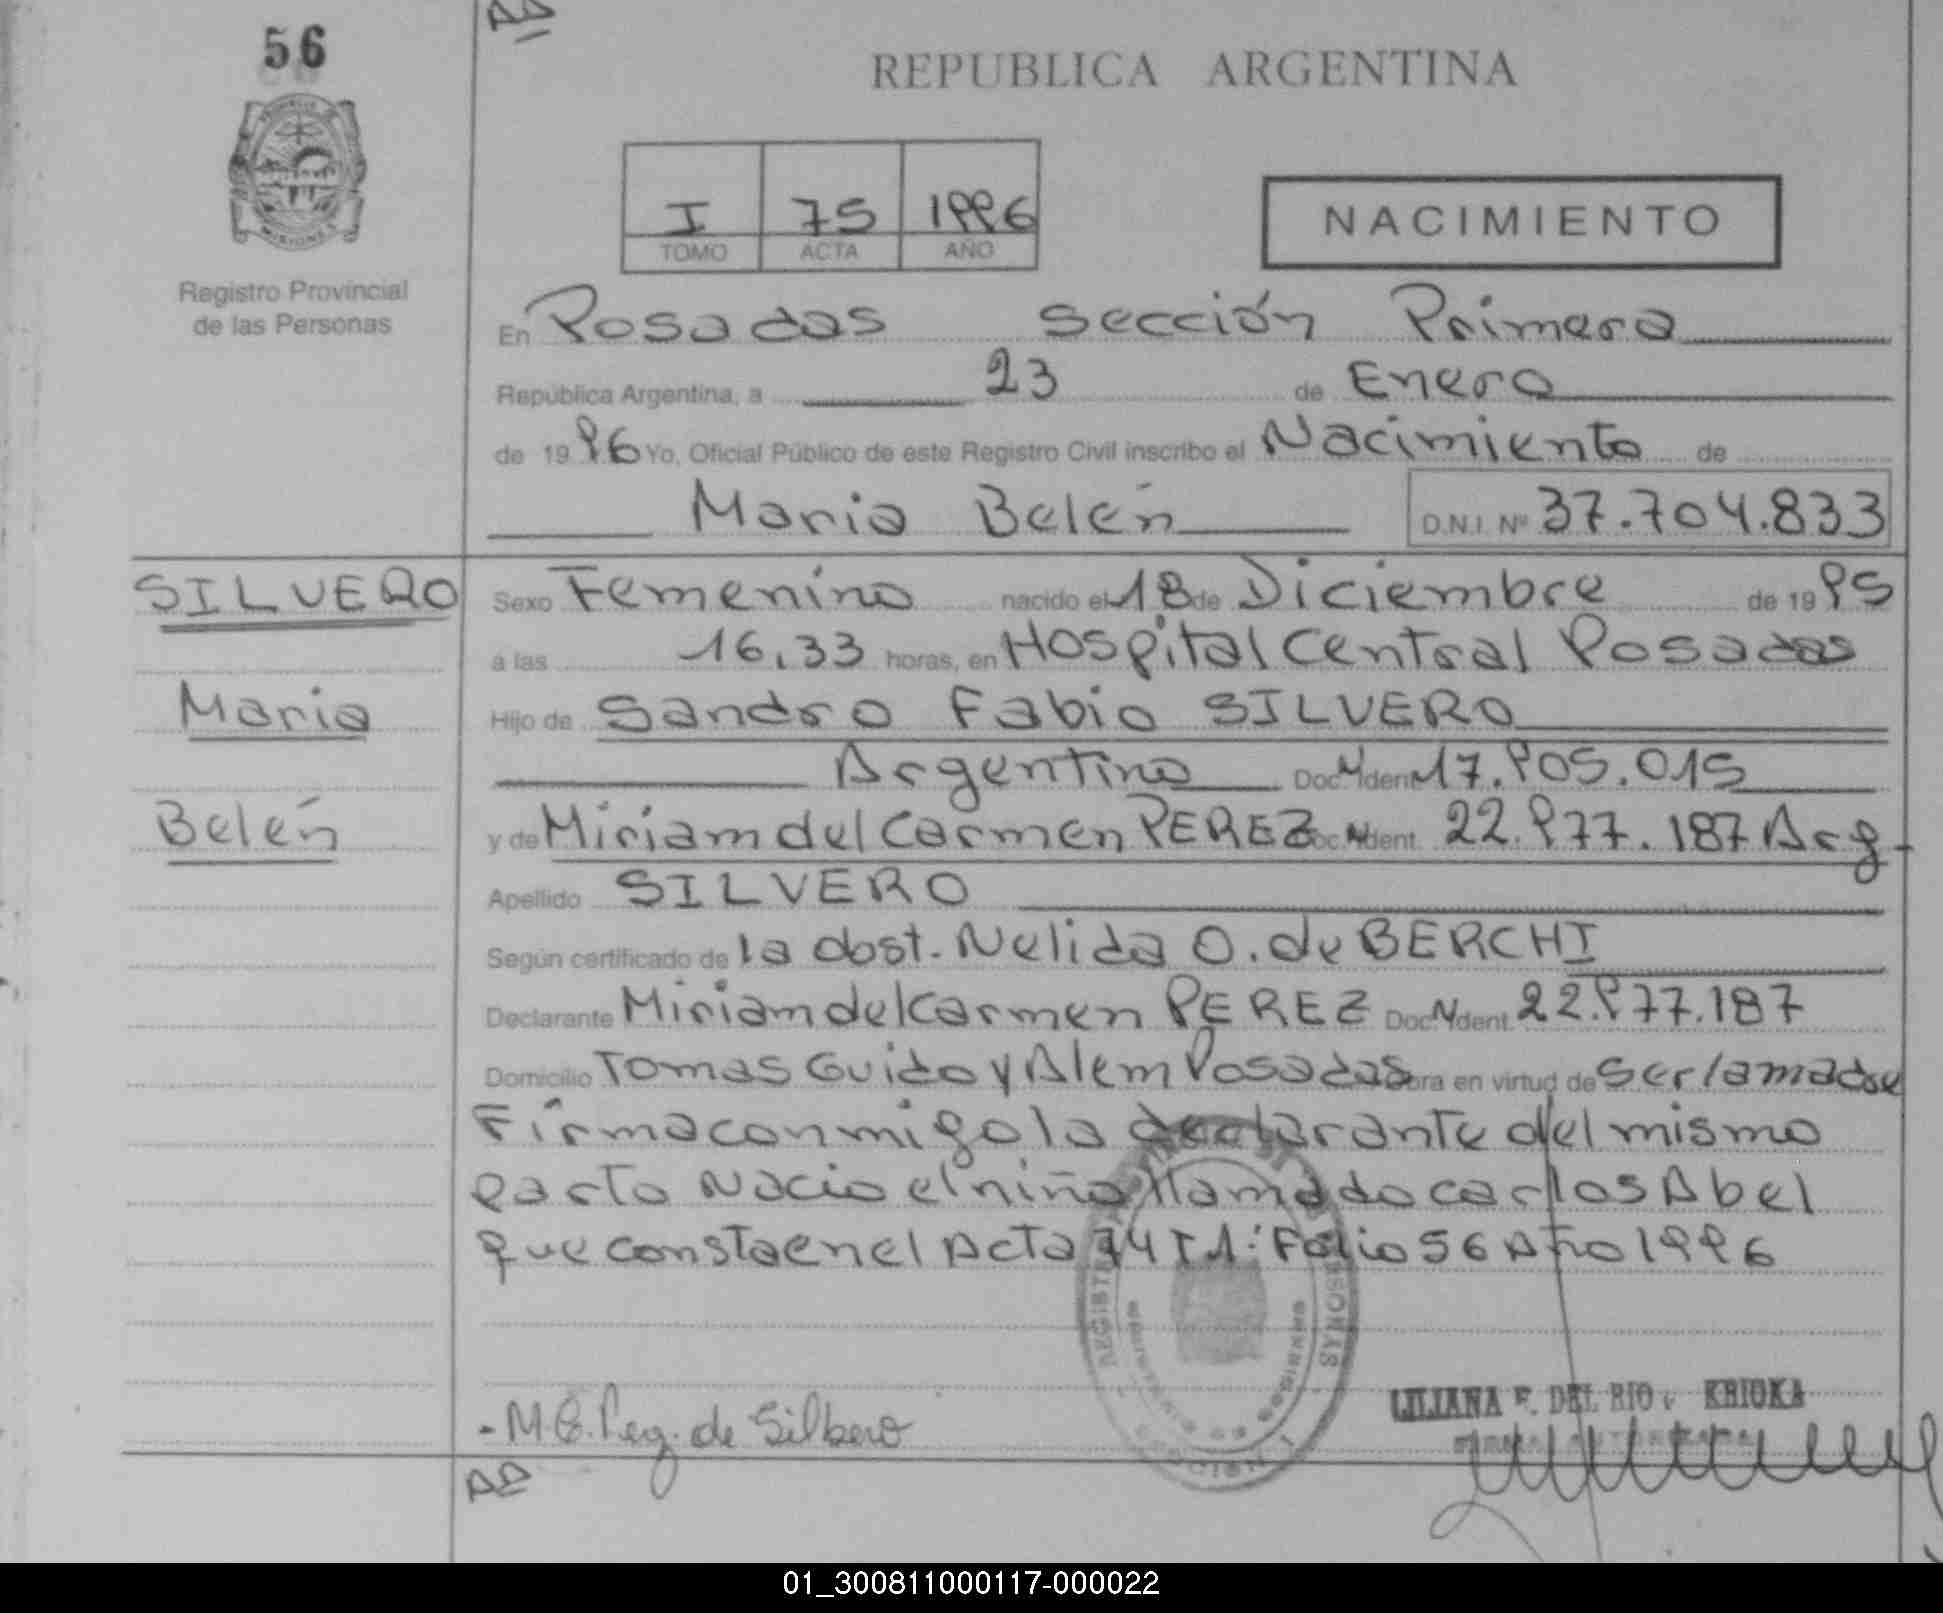 56
REPUBLICA ARGENTINA
I 75 1996
TOMO ACTA AÑO
NACIMIENTO
MISIONES
Registro Provincial
de las Personas
En Posadas sección Primera
República Argentina, a 23 de Enero
de 1996 Yo, Oficial Público de este Registro Civil inscribo el Nacimiento de
Maria Belén D.N.I. Nº 37.704.833
SILVERO
Maria
Belén
Sexo Femenino nacido el 18 de Diciembre de 1995
a las 16,33 horas, en Hospital Central Posadas
Hijo de Sandro Fabio SILVERO
Argentino Doc. Ident. 17.905.015
y de Miriam del Carmen PEREZ Doc. Ident. 22.977.187 Arg.
Apellido SILVERO
Según certificado de la obst. Nelida O. de BERCHI
Declarante Miriam del Carmen PEREZ Doc. Ident. 22.977.187
Domicilio Tomas Guido y Alem Posadas obra en virtud de ser la madre
Firma conmigo la declarante del mismo
parto Nacio el niño llamado Carlos Abel
que consta en el Acta 74 T 1: Folio 56 Año 1996
LILIANA F. DEL RIO KRIOKA
FIRMA AUTORIZADA
de Silbero
01_300811000117-000022